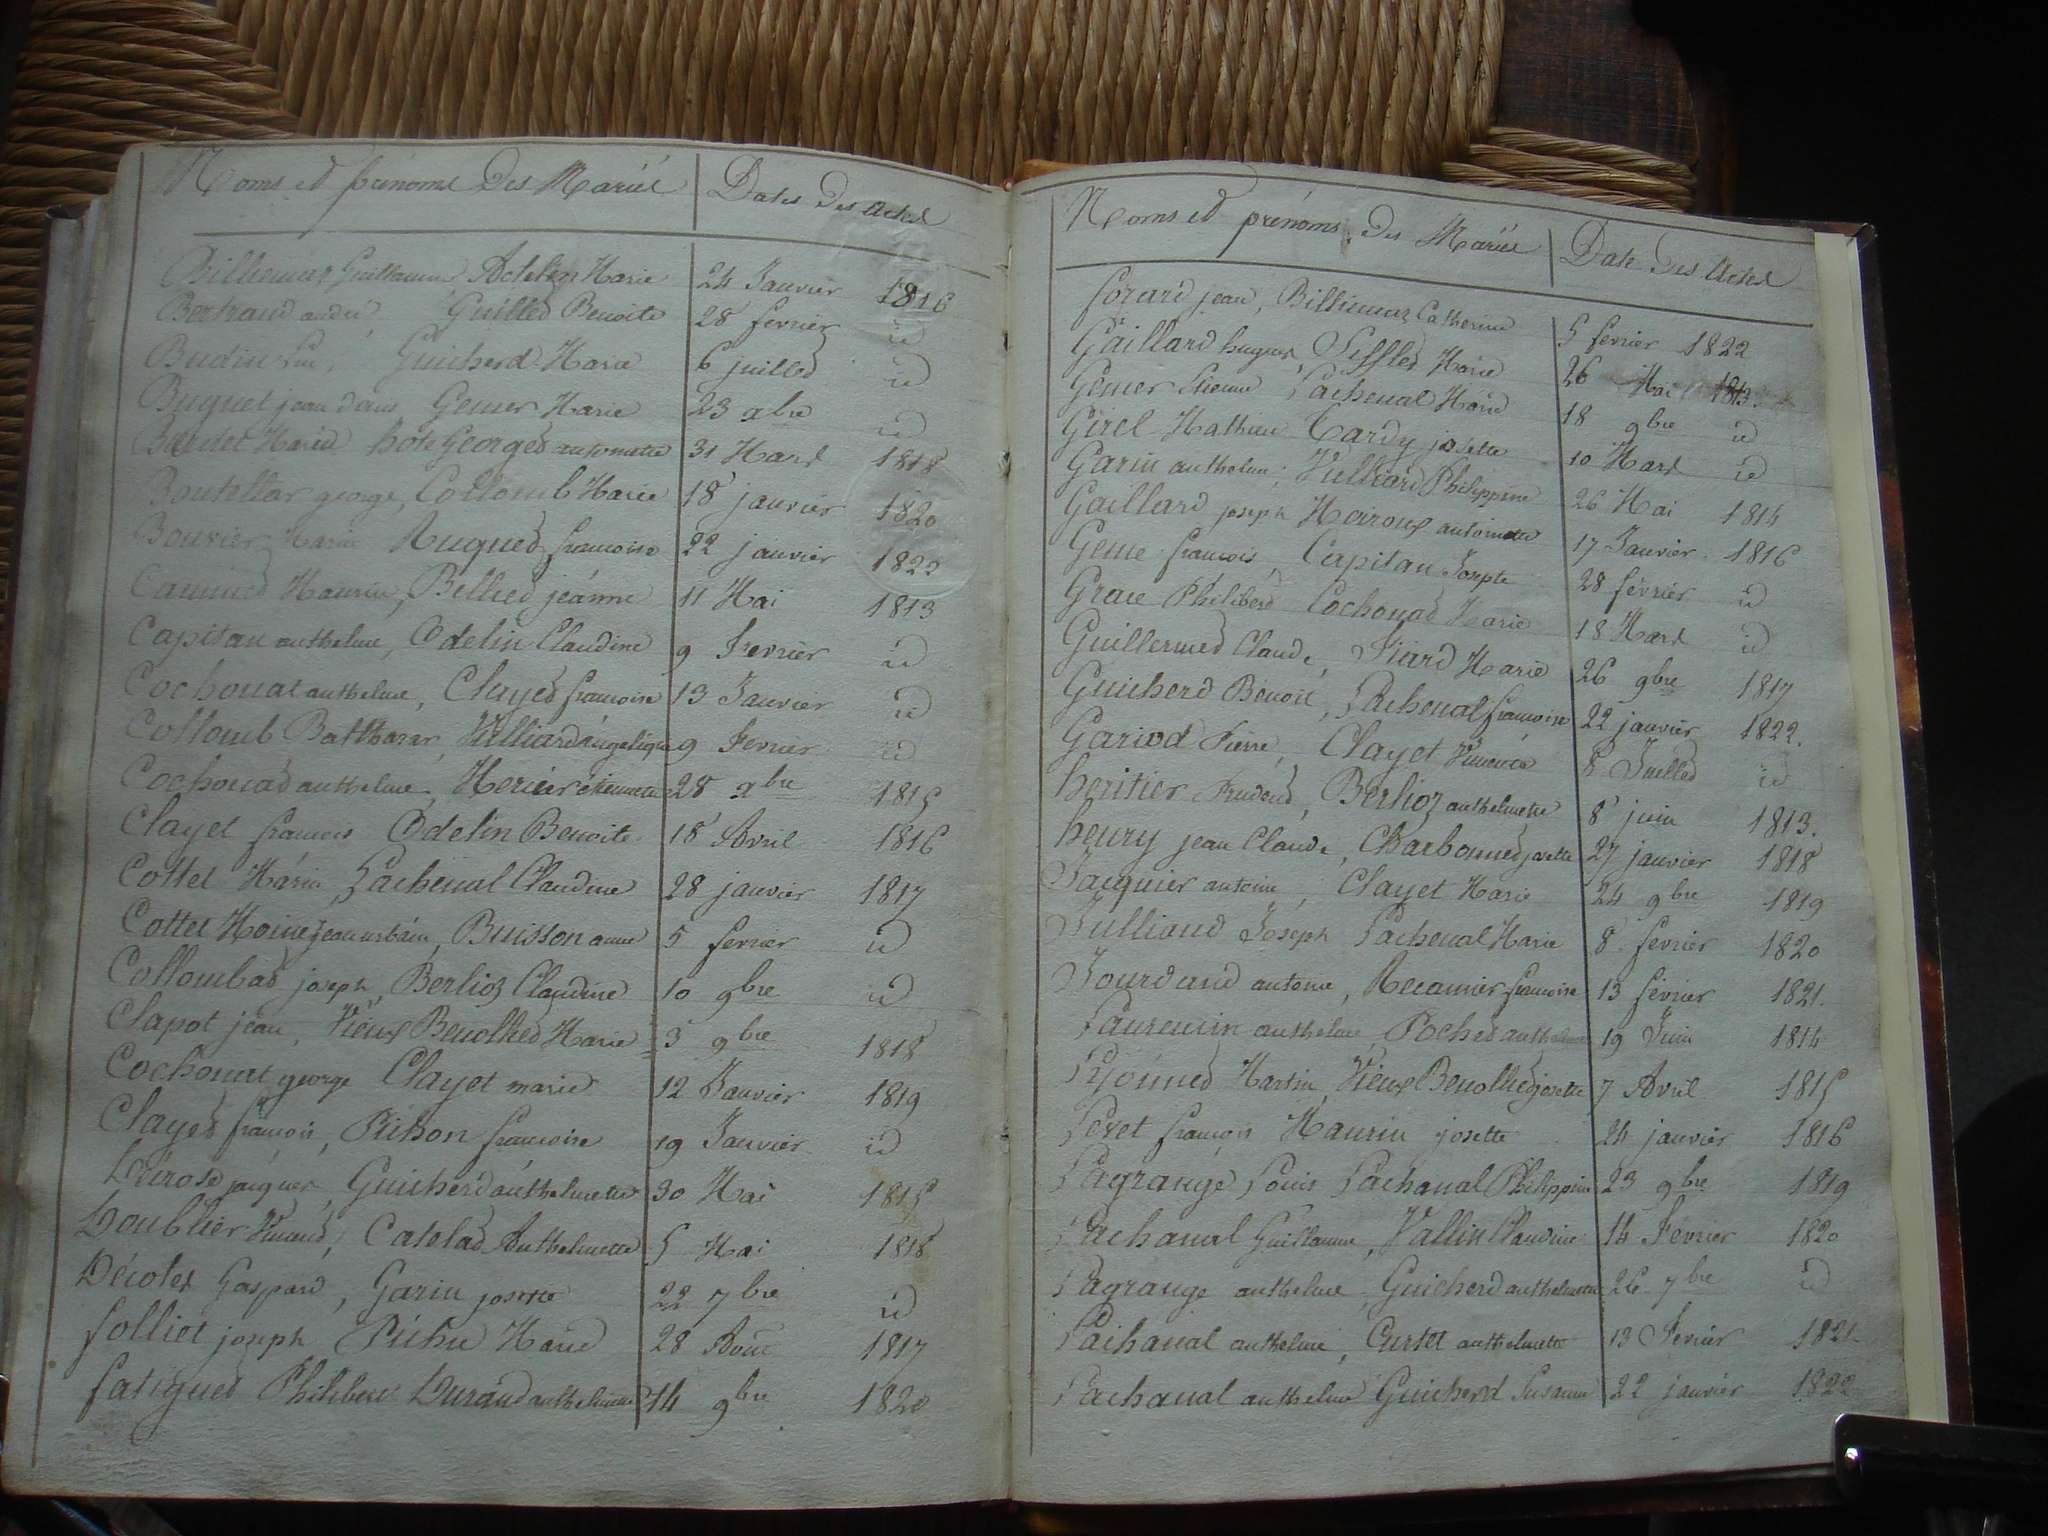 Noms et prénoms Des Mariés Dates Des Actes
Billiemaz Guillaume Actelin Marie 24 Janvier 1816
Bertrand andré Guilled Benoite 28 fevrier id
Budin Luc, Guicherd Marie 6 juilled id
Buquet jean Genier Marie 23 9bre id
hote Georged antoinette 31 Mard 1818
Boutellar george, Collomb Marie 18 janvier 1820
Bouvier Marin Rugued francoise 22 janvier 1822
Maurin, Bellied jeanne 11 Mai 1813
Capitan anthelme, Odelin Claudine 9 Fevrier id
Cochonat anthelme, Clayed francoise 13 Janvier id
Collomb Balthazar, Vulliard angelique 9 Fevrier id
Cochonad anthelme, Merier étiennette 28 9bre 1815
Clayet francois Odelin Benoite 18 Avril 1816
Cottet Marin Lachenal Claudine 28 janvier 1817
Cottet Moine jean urbain, Buisson anne 5 fevrier id
Collombad joseph, Berlioz Claudine 10 9bre id
Clapot jean, Vieux Benolhed Marie 3 9bre 1818
Cochonat george Clayet marie 12 Janvier 1819
Clayed francois, Pichon francoise 19 Janvier id
Durosd jacques, Guicherd anthelmette 30 Mai 1815
Doublier Vincend, Catelad Anthelmette 5 Mai 1818
Décoted Gaspard, Garin josette 22 7bre id
folliet joseph Pichu Marie 28 Aout 1817
fatigued Philibert Durand anthelmette 14 9bre 1820
Noms et prénoms Des Mariés Date Des Actes
forard jean, Billiemaz Catherine 5 fevrier 1822
Gaillard hugues Sifflet Marie 26 Mai 1813.
Genier Etienne Lachenal Marie 18 9bre id
Girel Mathieu Tardy josette 10 Mard id
Garin anthelme, Vulliard Philippine 26 Mai 1814
Gaillard joseph Moiroux antoinette 17 Janvier 1816
Genie francois, Capitan Josepte 28 février id
Grace Philiberd Cochonad Marie 18 Mard id
Guillermed Claude, Fiard Marie 26 9bre 1817
Guicherd Benoit, Lachenal francoise 22 janvier 1822.
Gariod Pierre, Clayet 8 Juilled id
heritier Prudend, Berlioz anthelmette 8 juin 1813.
henry jean Claude, Charbonned josette 27 janvier 1818
Jacquier antoine, Clayet Marie 24 9bre 1819
Julliand Joseph Lachenal Marie 8 fevrier 1820
Jourdand antoine, Recamier francoise 13 fevrier 1821.
Laurencin anthelme Poched 19 Juin 1814
Martin, Vieux Benolhed josette 7 Avril 1815
Levet francois Maurin josette 24 janvier 1816
Lagrange Louis Lachanal Philippine 23 9bre 1819
Lachanal Guillaume, Vallin Claudine 14 Fevrier 1820
Lagrange anthelme, Guicherd anthelmette 26 7bre id
Lachanal anthelme, Curtet anthelmette 13 Fevrier 1821
Lachanal anthelme Guicherd Susanne 22 janvier 1822